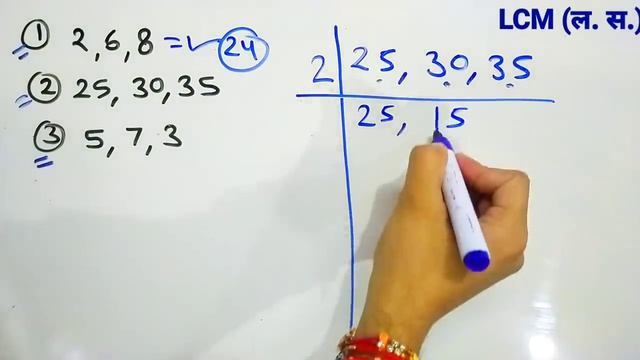 LCM (ल. स.)
① 2, 6, 8 = 24
② 25, 30, 35
③ 5, 7, 3
2 | 25, 30, 35
25, 15